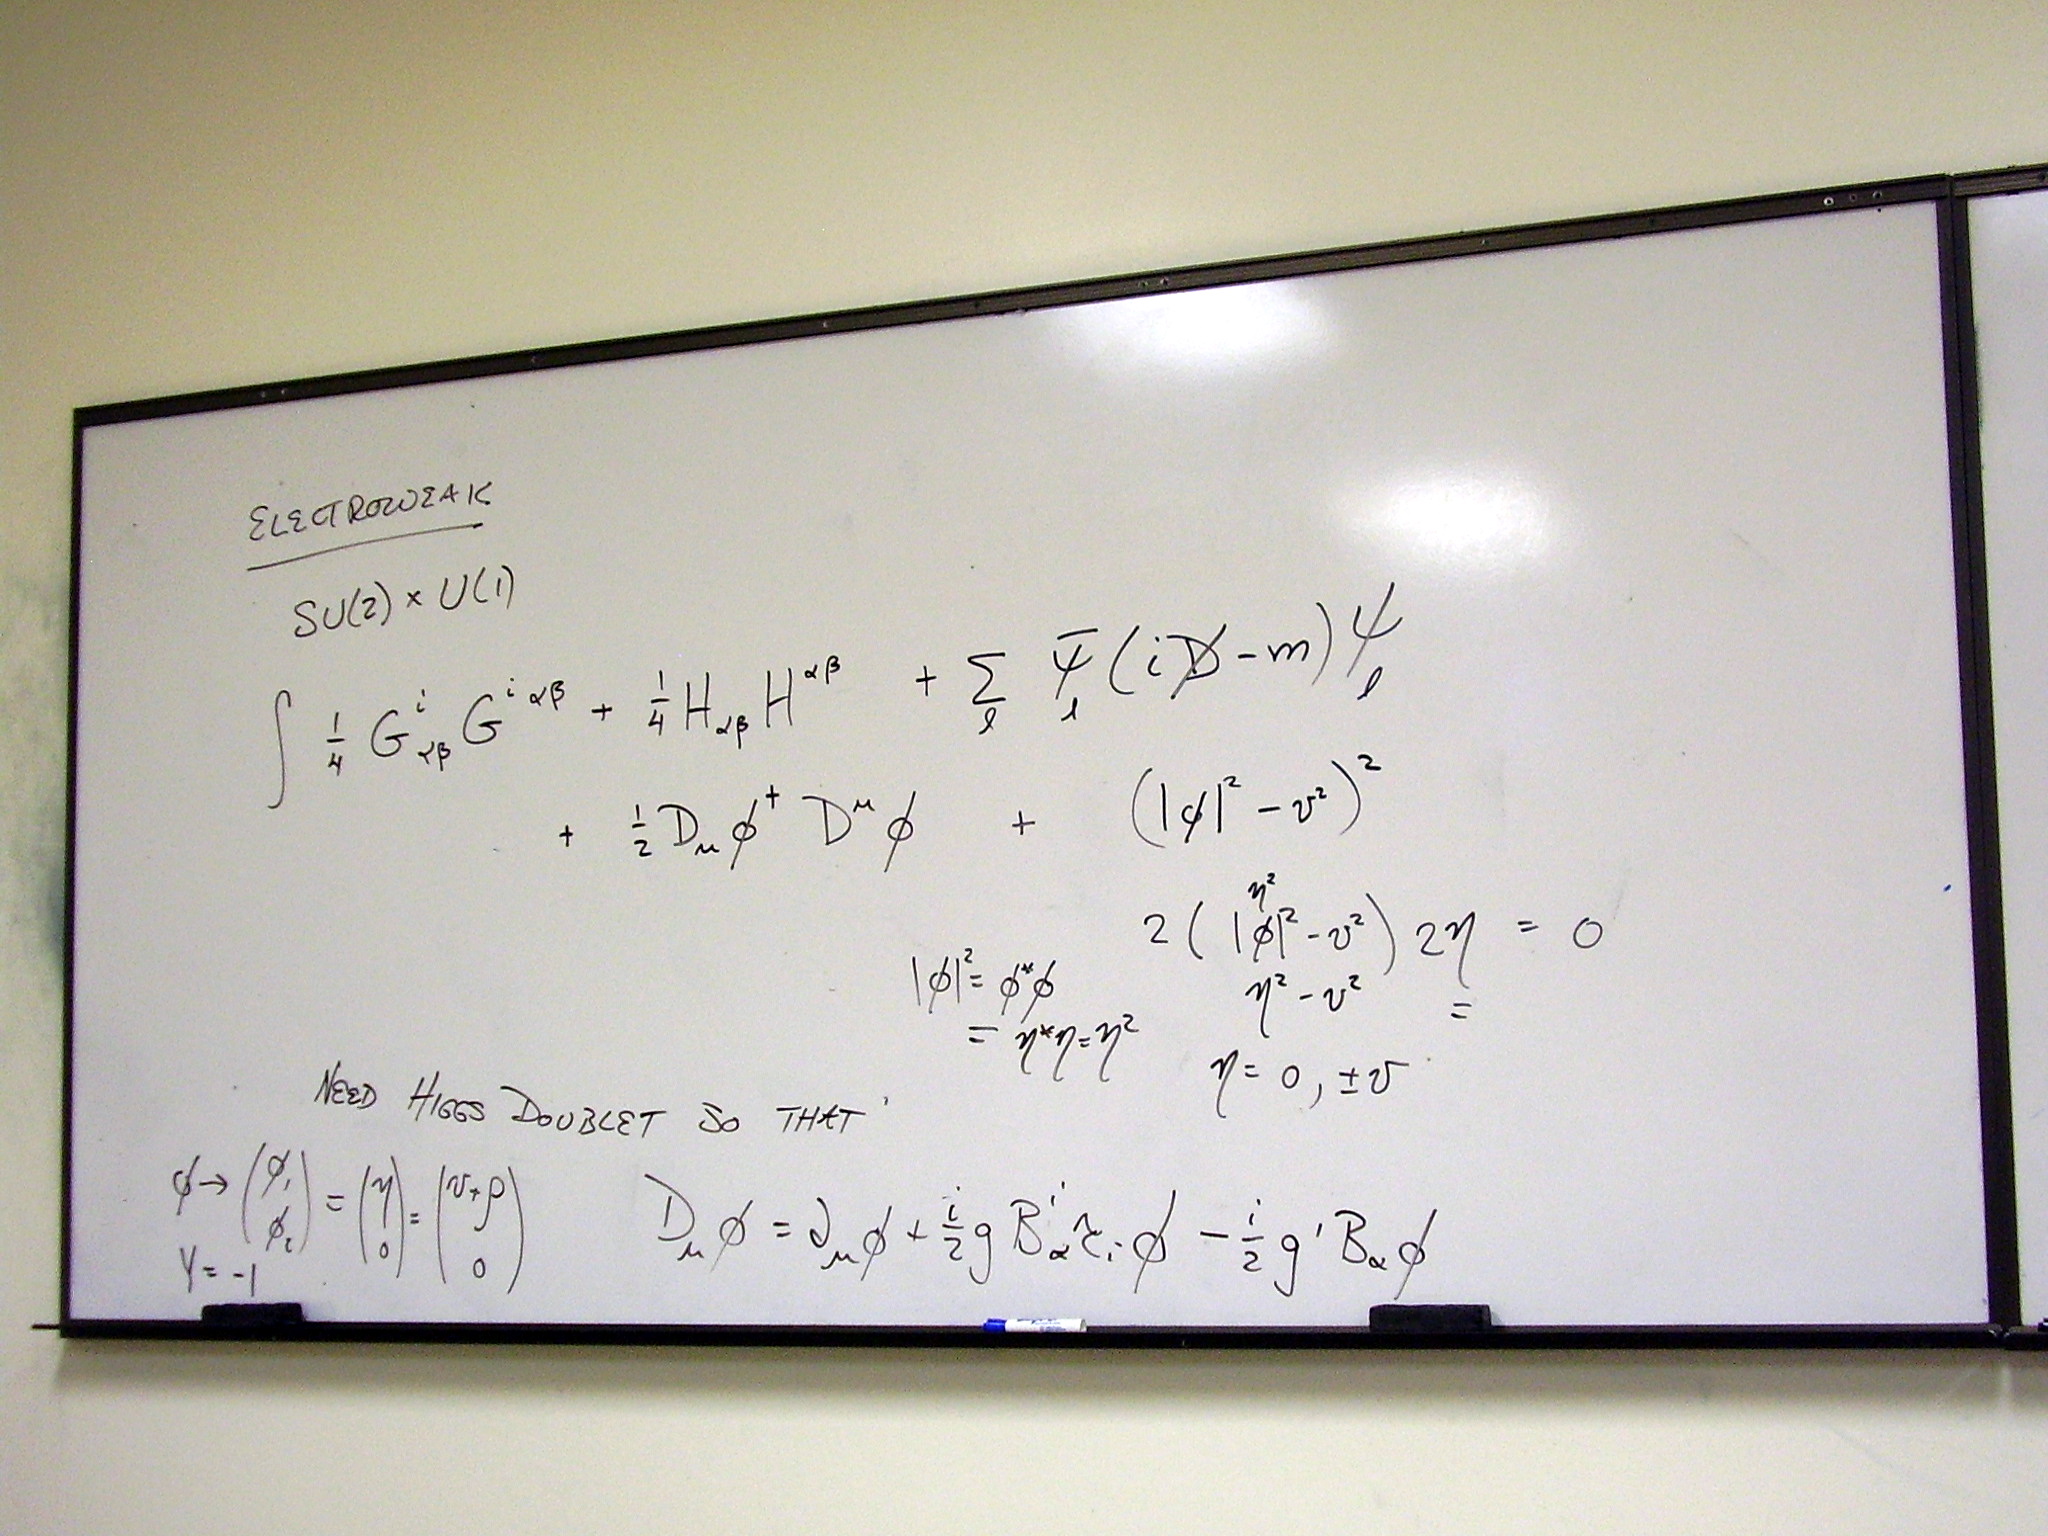 ELECTROWEAK
SU(2) × U(1)
∫ 1/4 G^i_αβ G^{i αβ} + 1/4 H_αβ H^αβ + Σ_l ψ̄_l (iD̸ - m) ψ_l
+ 1/2 D_μ φ^† D^μ φ + (|φ|² - v²)²
η²
2 ( |φ|² - v² ) 2η = 0
|φ|² = φ*φ
η² - v² =
= η*η = η²
η = 0, ±v
NEED HIGGS DOUBLET SO THAT
φ → (φ₁ φ₂) = (η 0) = (v+ρ 0)
Y = -1
D_μ φ = ∂_μ φ + i/2 g B^i_α τ_i φ - i/2 g' B_α φ